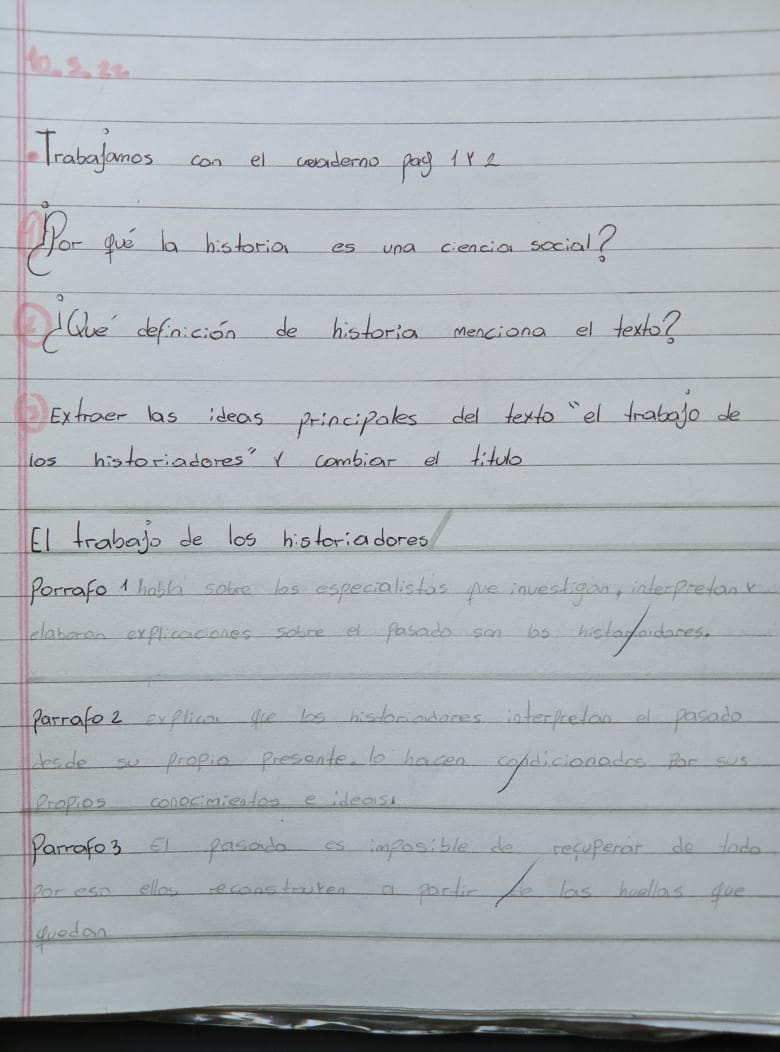 10.5.22
Trabajamos con el cuaderno pag 1 Y 2
1) ¿Por qué la historia es una ciencia social?
2) ¿Qué definición de historia menciona el texto?
3) Extraer las ideas principales del texto "el trabajo de
los historiadores" Y cambiar el titulo
El trabajo de los historiadores
Porrafo 1 habla sobre los especialistas que investigan, interpretan Y
elaboran explicaciones sobre el pasado son los
Parrafo 2 explica que los historiadores interpretan el pasado
desde su propio presente. lo hacen condicionados por sus
propios conocimientos e ideas.
Parrafo 3 El pasado es imposible de recuperar de todo
por eso ellos reconstruyen a partir de las huellas que
quedan